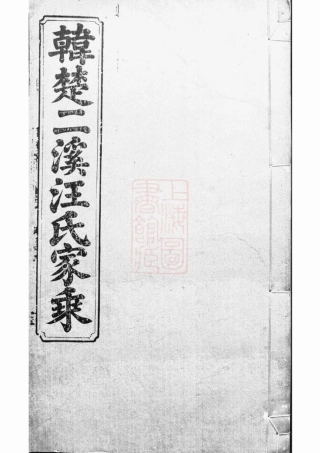 韓楚二溪汪氏家乘
上海圖書館藏